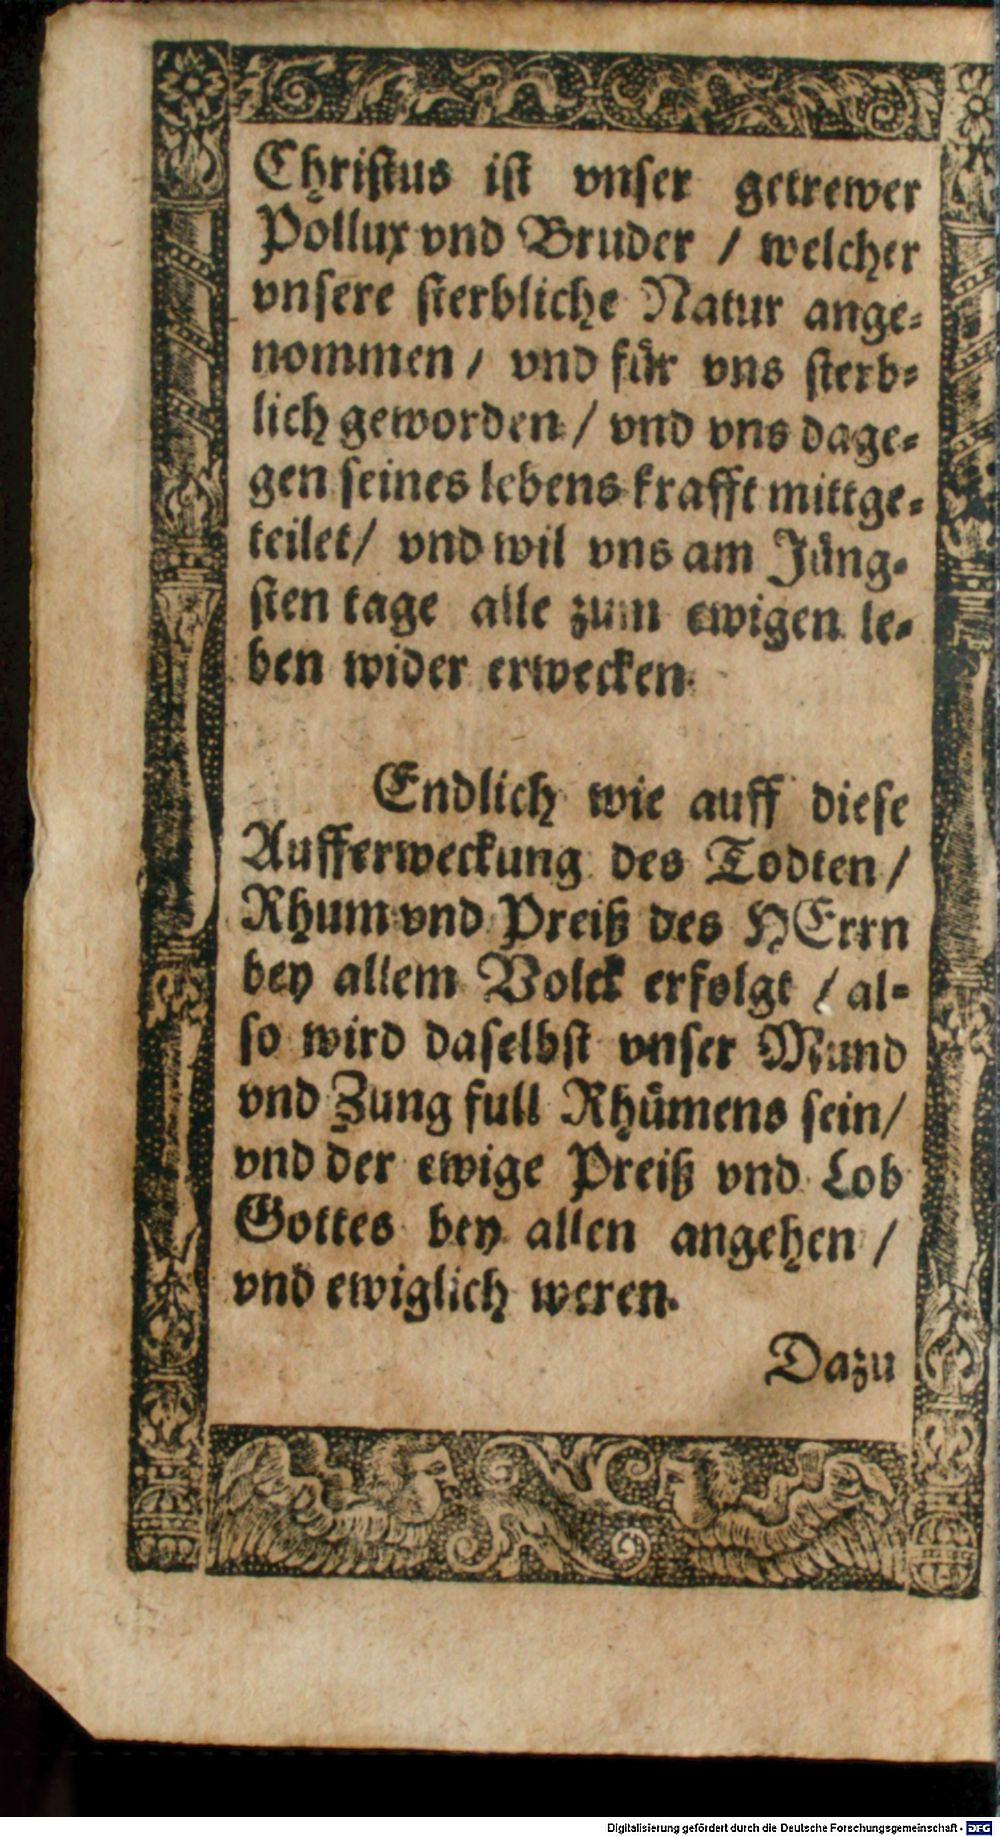 Christus ist vnser getrewer
Pollux vnd Bruder / welcher
vnsere sterbliche Natur ange-
nommen / vnd für vns sterb-
lich geworden / vnd vns dage-
gen seines lebens krafft mittge-
teilet / vnd wil vns am Jüng-
sten tage alle zum ewigen le-
ben wider erwecken.
Endlich wie auff diese
Aufferweckung des Todten /
Rhum vnd Preiß des HErrn
bey allem Volck erfolgt / al-
so wird daselbst vnser Mund
vnd Zung full Rhümens sein /
vnd der ewige Preiß vnd Lob
Gottes bey allen angehen /
vnd ewiglich weren.
Dazu
Digitalisierung gefördert durch die Deutsche Forschungsgemeinschaft - DFG